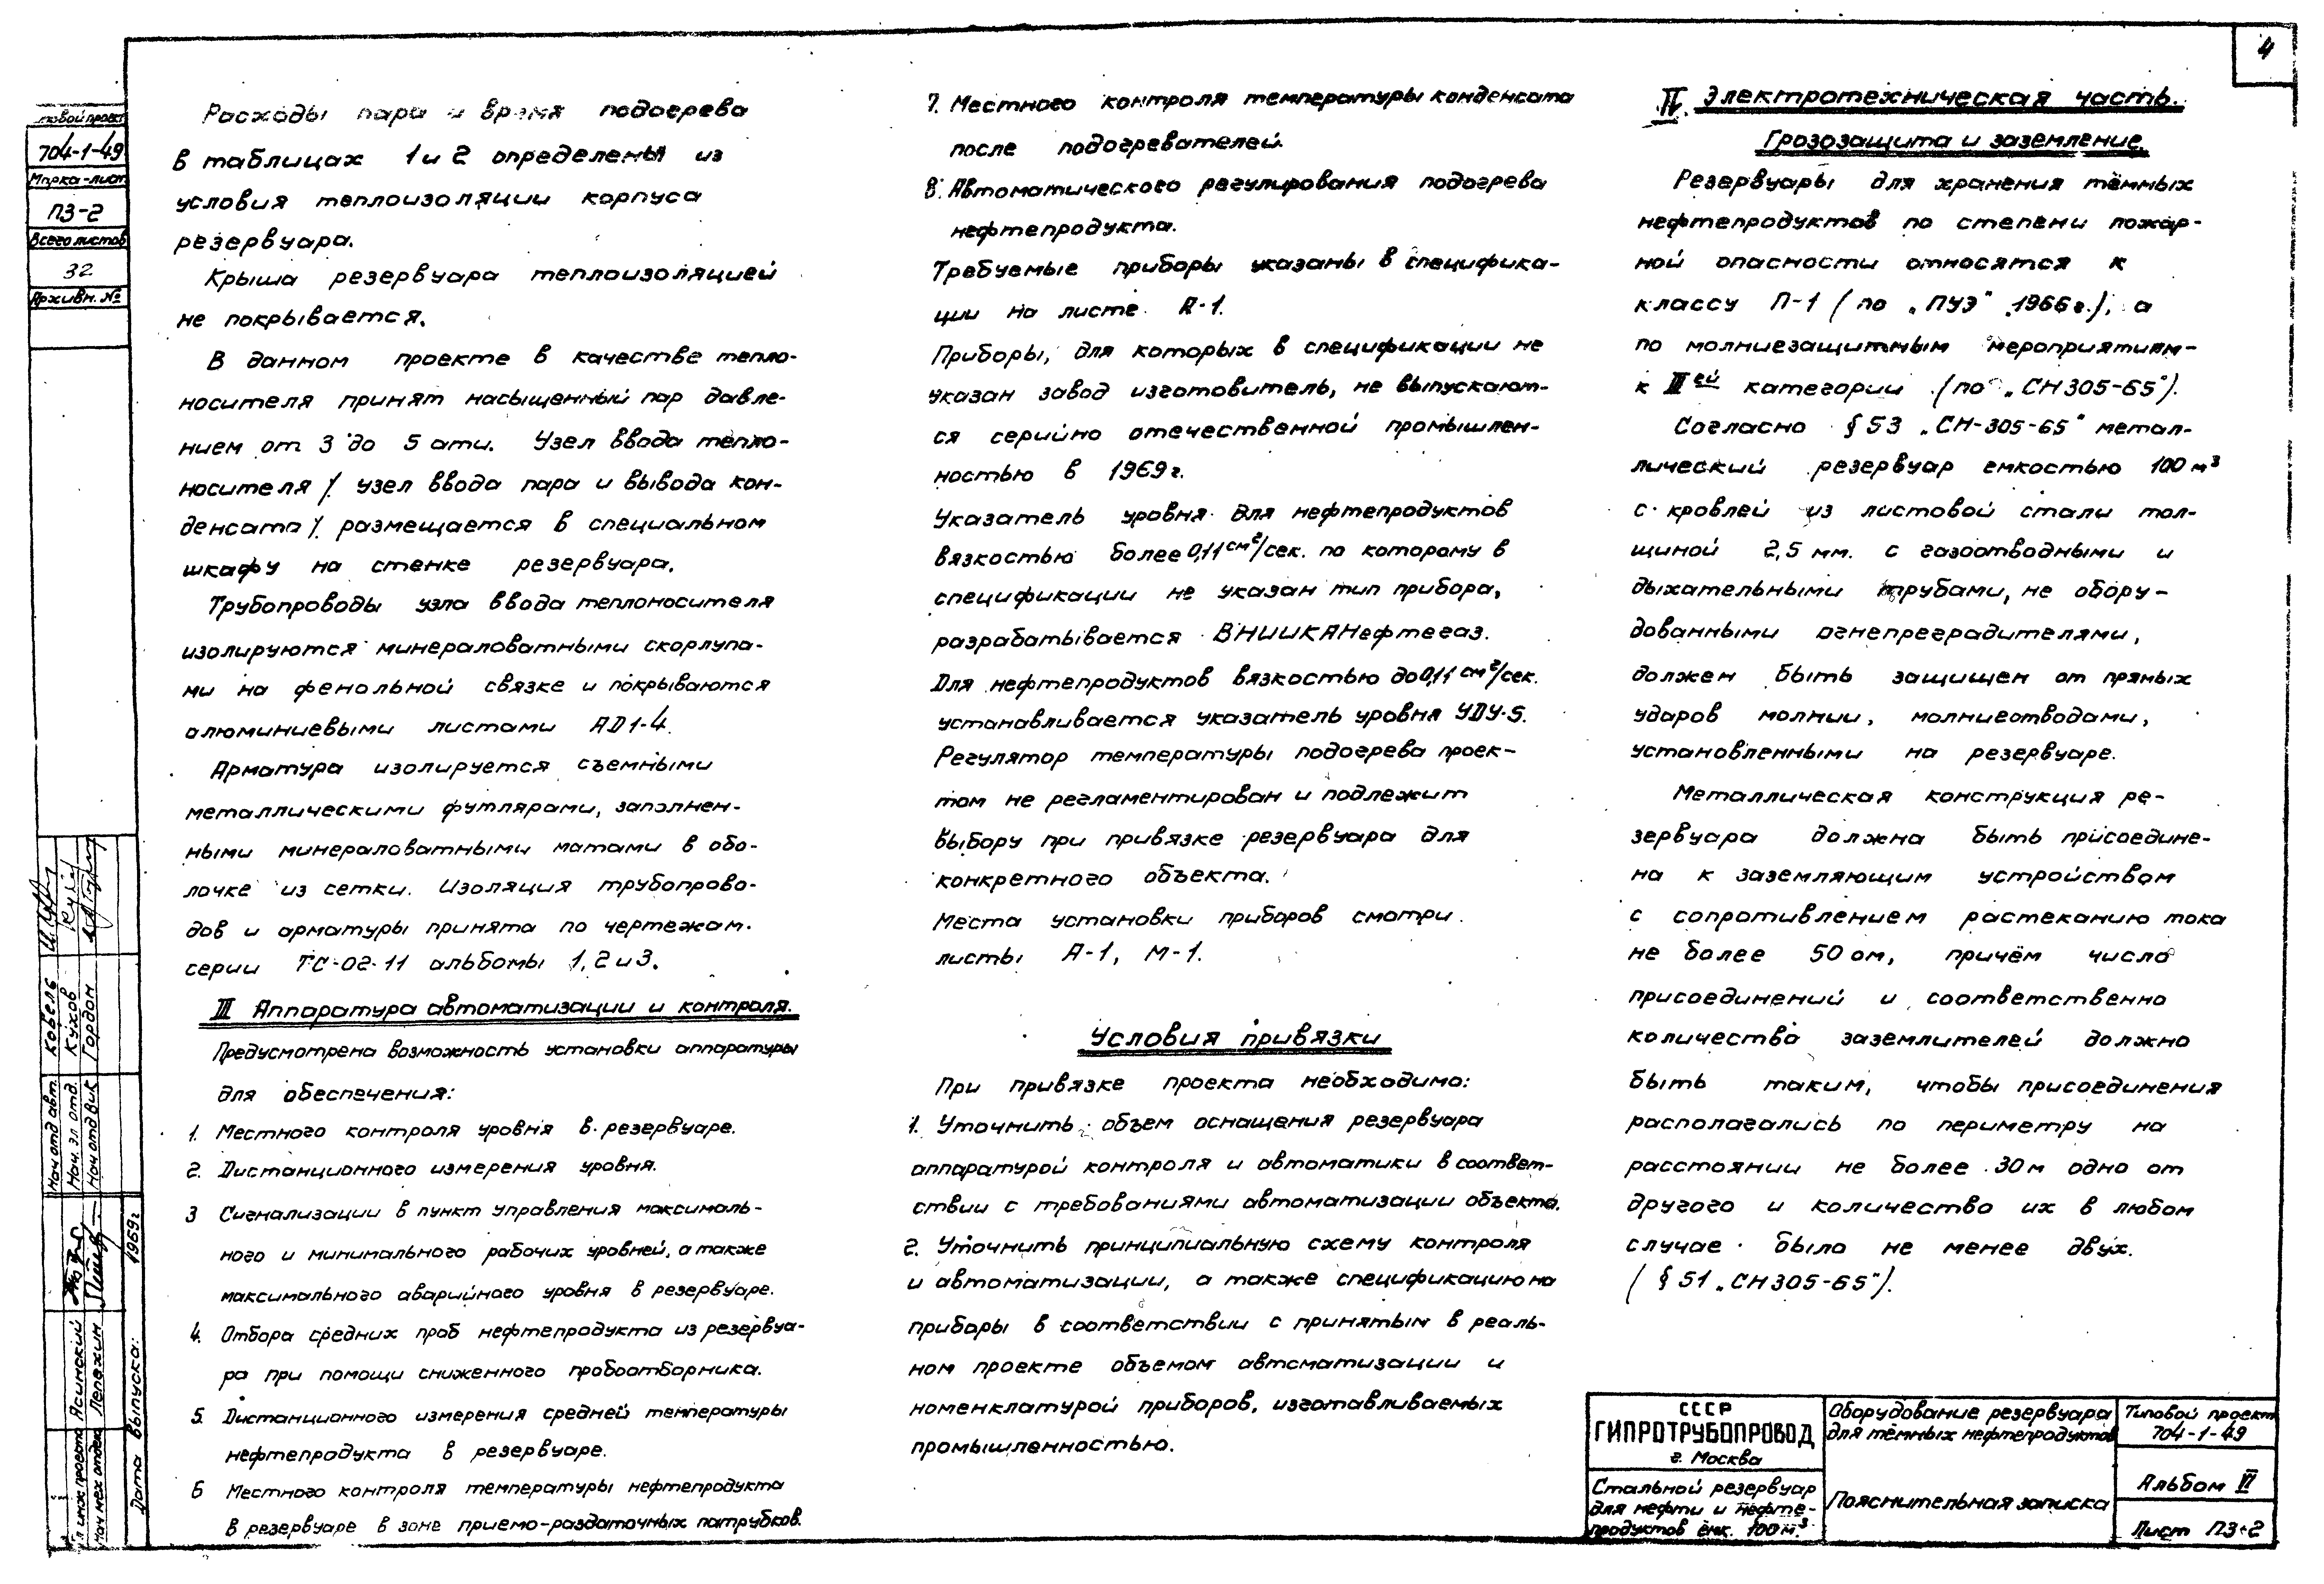 4
Расходы пара и время подогрева
в таблицах 1 и 2 определены из
условия теплоизоляции корпуса
резервуара.
Крыша резервуара теплоизоляцией
не покрывается.
В данном проекте в качестве тепло-
носителя принят насыщенный пар давле-
нием от 3 до 5 ати. Узел ввода тепло-
носителя /узел ввода пара и вывода кон-
денсата/ размещается в специальном
шкафу на стенке резервуара.
Трубопроводы узла ввода теплоносителя
изолируются минераловатными скорлупа-
ми на фенольной связке и покрываются
алюминиевыми листами АД1-4.
Арматура изолируется съемными
металлическими футлярами, заполнен-
ными минераловатными матами в обо-
лочке из сетки. Изоляция трубопрово-
дов и арматуры принята по чертежам
серии ТС-02-11 альбомы 1, 2 и 3.
III Аппаратура автоматизации и контроля.
Предусмотрена возможность установки аппаратуры
для обеспечения:
1. Местного контроля уровня в резервуаре.
2. Дистанционного измерения уровня.
3 Сигнализации в пункт управления максималь-
ного и минимального рабочих уровней, а также
максимального аварийного уровня в резервуаре.
4. Отбора средних проб нефтепродукта из резервуа-
ра при помощи сниженного пробоотборника.
5. Дистанционного измерения средней температуры
нефтепродукта в резервуаре.
6 Местного контроля температуры нефтепродукта
в резервуаре в зоне приемо-раздаточных патрубков.
7. Местного контроля температуры конденсата
после подогревателей.
8. Автоматического регулирования подогрева
нефтепродукта.
Требуемые приборы указаны в специфика-
ции на листе А-1.
Приборы, для которых в спецификации не
указан завод изготовитель, не выпускают-
ся серийно отечественной промышлен-
ностью в 1969 г.
Указатель уровня для нефтепродуктов
вязкостью более 0,11 см²/сек. по которому в
спецификации не указан тип прибора,
разрабатывается ВНИИКАНефтегаз.
Для нефтепродуктов вязкостью до 0,11 см²/сек.
устанавливается указатель уровня УДУ-5.
Регулятор температуры подогрева проек-
том не регламентирован и подлежит
выбору при привязке резервуара для
конкретного объекта.
Места установки приборов смотри
листы А-1, М-1.
Условия привязки
При привязке проекта необходимо:
1. Уточнить объем оснащения резервуара
аппаратурой контроля и автоматики в соответ-
ствии с требованиями автоматизации объекта.
2. Уточнить принципиальную схему контроля
и автоматизации, а также спецификацию на
приборы в соответствии с принятым в реаль-
ном проекте объемом автоматизации и
номенклатурой приборов, изготавливаемых
промышленностью.
IV. Электротехническая часть.
Грозозащита и заземление.
Резервуары для хранения тёмных
нефтепродуктов по степени пожар-
ной опасности относятся к
классу П-1 (по „ПУЭ" 1966 г.), а
по молниезащитным мероприятиям-
к IIей категории (по „СН 305-65").
Согласно § 53 „СН-305-65" метал-
лический резервуар емкостью 100 м³
с кровлей из листовой стали тол-
щиной 2,5 мм. с газоотводными и
дыхательными трубами, не обору-
дованными огнепреградителями,
должен быть защищен от прямых
ударов молнии, молниеотводами,
установленными на резервуаре.
Металлическая конструкция ре-
зервуара должна быть присоедине-
на к заземляющим устройствам
с сопротивлением растеканию тока
не более 50 ом, причём число
присоединений и соответственно
количество заземлителей должно
быть таким, чтобы присоединения
располагались по периметру на
расстоянии не более 30 м одно от
другого и количество их в любом
случае было не менее двух.
(§ 51 „СН 305-65").
СССР
ГИПРОТРУБОПРОВОД
г. Москва
Стальной резервуар
для нефти и нефте-
продуктов емк. 100 м³
Оборудование резервуара
для тёмных нефтепродуктов
Пояснительная записка
Типовой проект
704-1-49
Альбом VI
Лист ПЗ-2
704-1-49
Марка-лист
ПЗ-2
Всего листов
32
Архивн. №
Нач отд авт. Кобель
Нач. эл отд. Кухов
Нач отд ВиК Гордон
Гл инж проекта Ясинский
Нач мех отдела Лепехин
Дата выпуска: 1969г